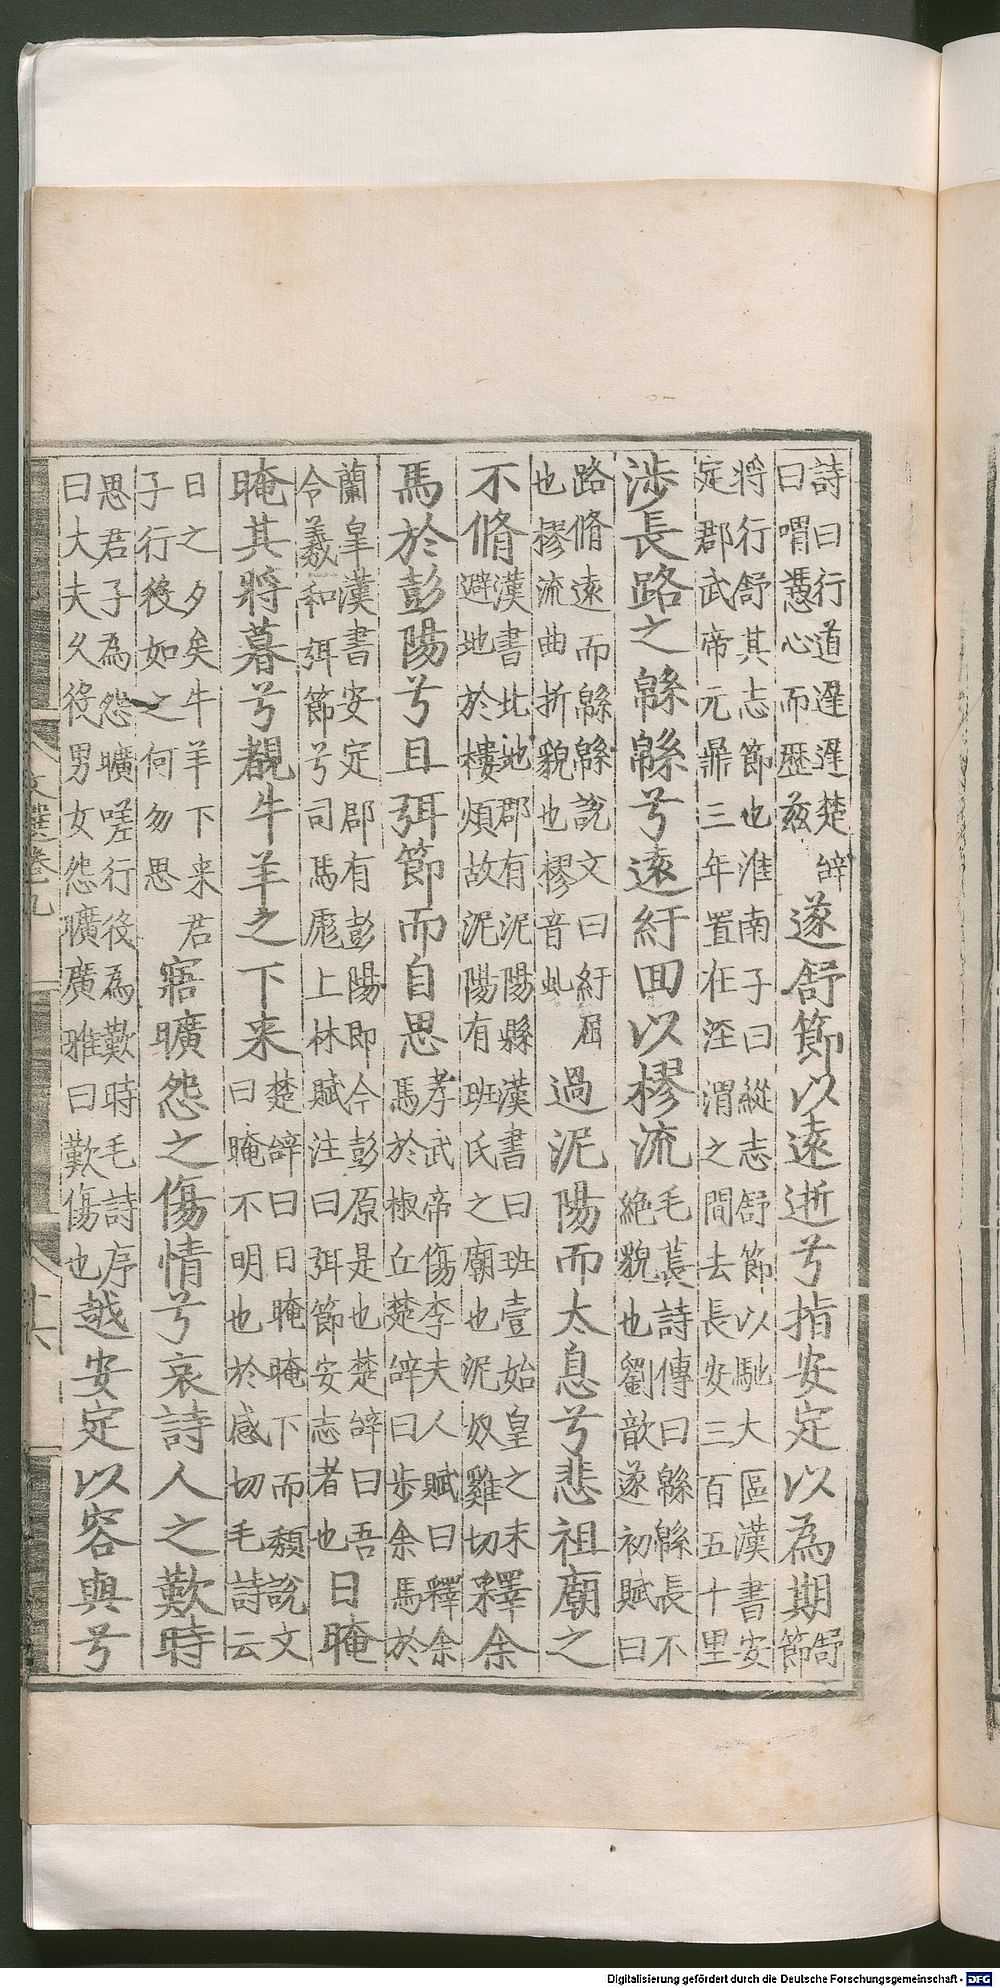 詩曰行道遲遲楚辭
曰喟憑心而歷茲
遂舒節以遠逝兮指安定以為期
舒
節
將行舒其志節也淮南子曰縱志舒節以馳大區漢書安
定郡武帝元鼎三年置在涇渭之間去長安三百五十里
涉長路之緜緜兮遠紆回以樛流
毛萇詩傳曰緜緜長不
絶貌也劉歆遂初賦曰
路脩遠而緜緜說文曰紆屈
也樛流曲折貌也樛音虬
過泥陽而太息兮悲祖廟之
不脩
漢書北地郡有泥陽縣漢書曰班壹始皇之末
避地於樓煩故泥陽有班氏之廟也泥奴雞切
釋余
馬於彭陽兮且弭節而自思
孝武帝傷李夫人賦曰釋余
馬於椒丘楚辭曰步余馬於
蘭臯漢書安定郡有彭陽即今彭原是也楚辭曰吾
令羲和弭節兮司馬彪上林賦注曰弭節安志者也
日晻
晻其將暮兮覩牛羊之下来
楚辭曰日晻晻下而頽說文
曰晻不明也於感切毛詩云
日之夕矣牛羊下来君
子行役如之何勿思
寤曠怨之傷情兮哀詩人之歎時
思君子為怨曠嗟行役為歎時毛詩序
曰大夫久役男女怨曠廣雅曰歎傷也
越安定以容與兮
文選卷九
十六
Digitalisierung gefördert durch die Deutsche Forschungsgemeinschaft - DFG